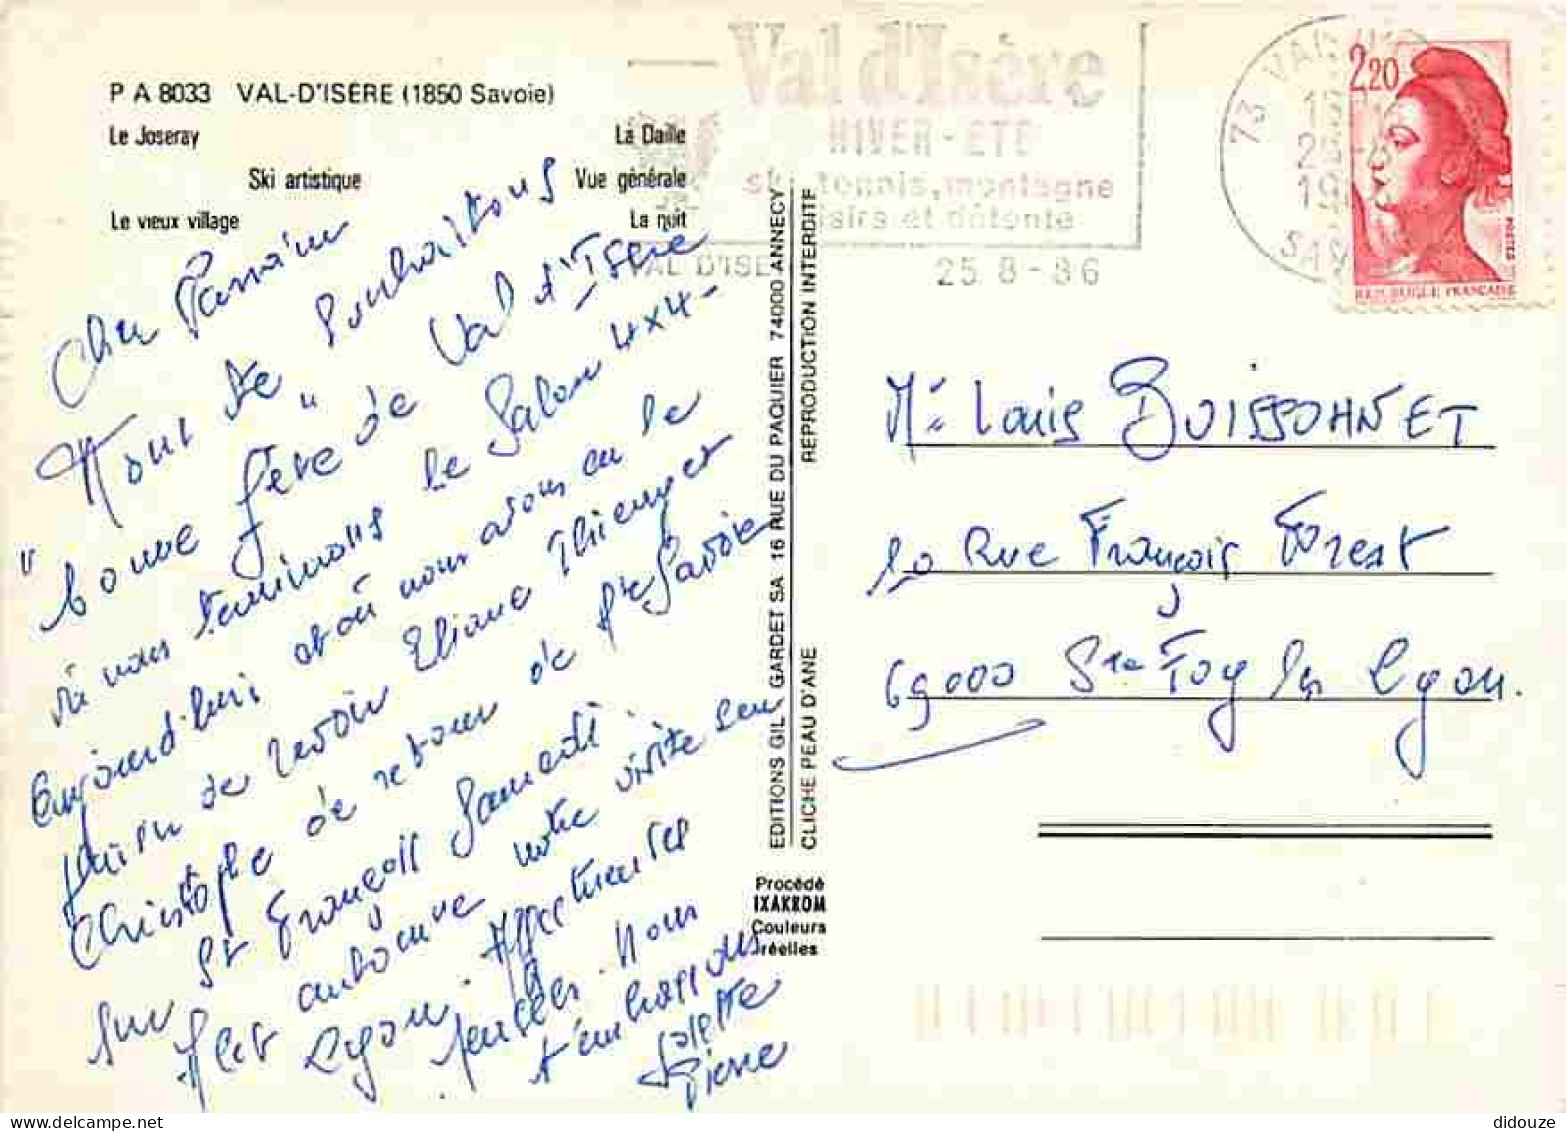 P A 8033 VAL-D'ISÈRE (1850 Savoie)
Le Joseray La Daille
Ski artistique Vue générale
Le vieux village La nuit
Val d'Isère
HIVER - ETE
ski, tennis, montagne
loisirs et détente
VAL D'ISE
25 8 - 86
73 VAL
SAV
2,20
POSTES
REPUBLIQUE FRANÇAISE
Cher Parrain
Nous te souhaitons
"bonne fête" de Val d'Isère
où nous terminons le Salon 4x4 -
aujourd'hui et où nous avons eu le
plaisir de revoir Eliane Thierry et
Christophe de retour de Hte Savoie
sur St François Samedi.
automne notre visite sur
Lyon. Affectueuses
pensées. Nous
t'embrassons
Pierre
EDITIONS GIL GARDET SA 16 RUE DU PAQUIER 74000 ANNECY
CLICHE PEAU D'ANE REPRODUCTION INTERDITE
Procédé
IXAKROM
Couleurs
réelles
Mr Louis BUISSONNET
10 Rue François Forest
69000 Ste Foy les Lyon.
didouze